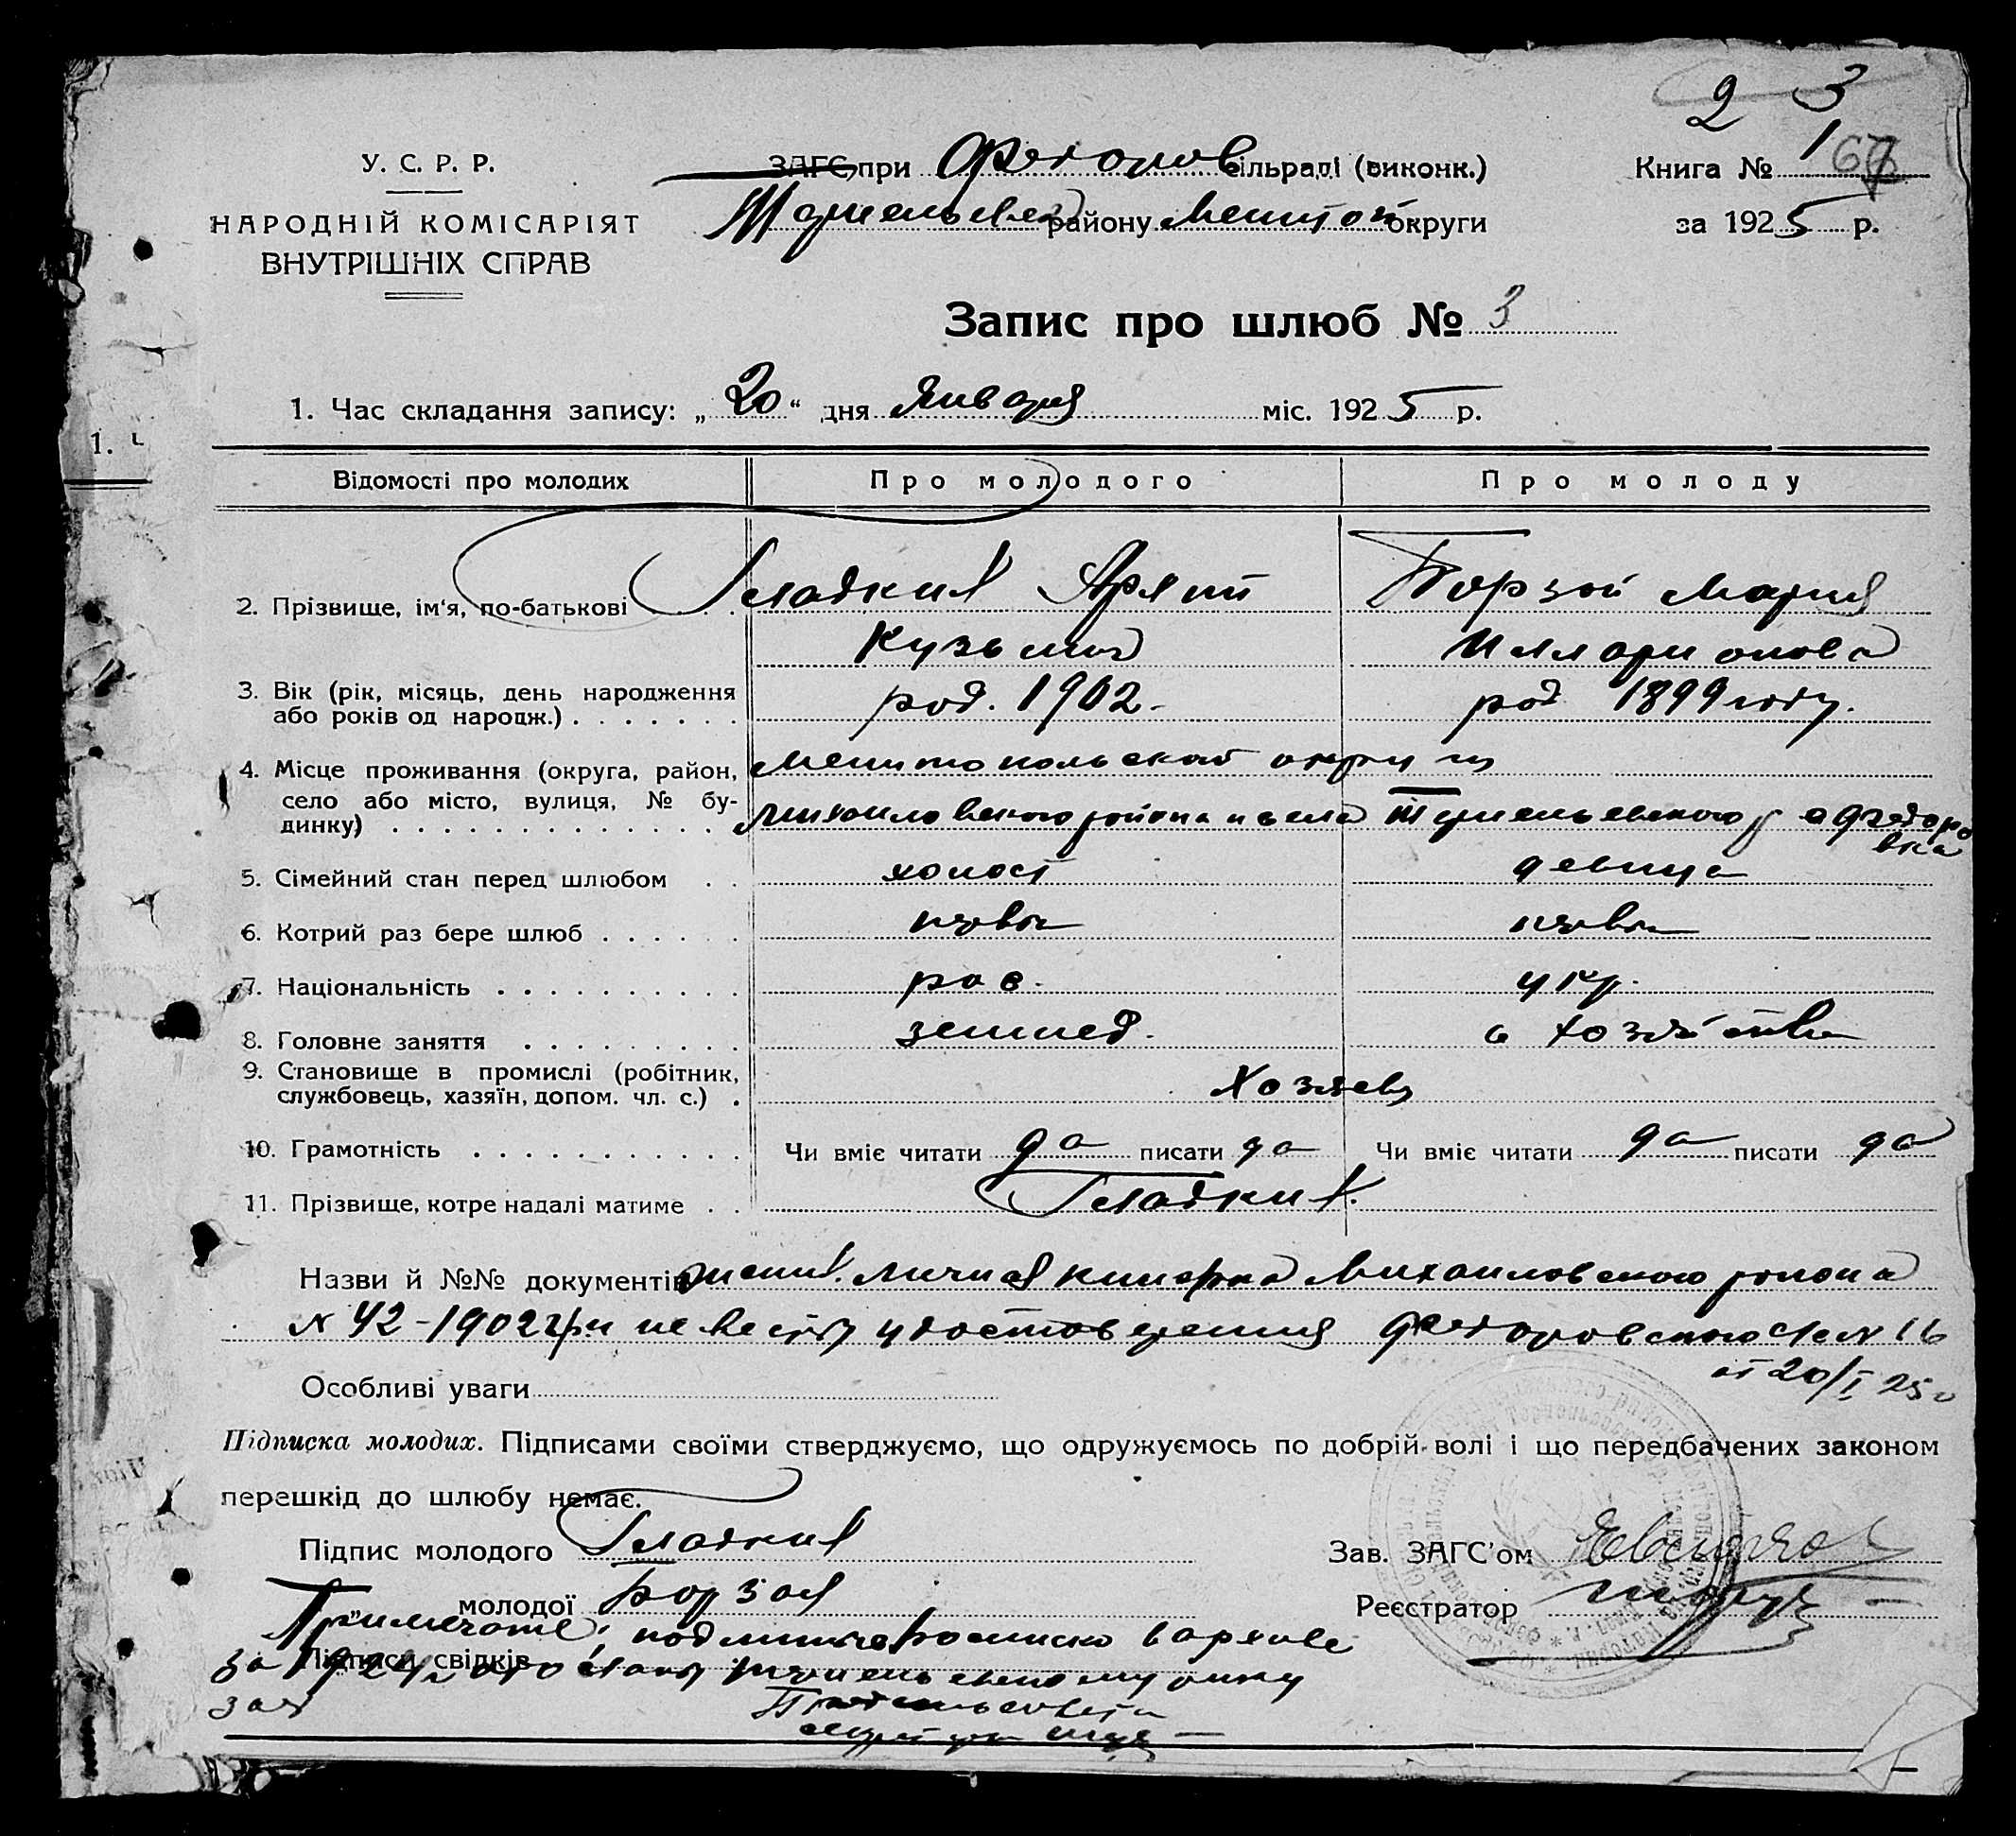 2 3
У. С. Р. Р.
НАРОДНІЙ КОМІСАРІЯТ
ВНУТРІШНІХ СПРАВ
ЗАГС при Федоров сільраді (виконк.)
района Мелитоп округи
Книга № 1 67
за 1925 р.
Запис про шлюб № 3
1. Час складання запису: „20“ дня Января міс. 1925 р.
1. Ч
Відомості про молодих Про молодого Про молоду
2. Прізвище, ім'я, по-батькові Гладких Борзой Мария
Кузьмич Илларионова
3. Вік (рік, місяць, день народження або років од народж.) род. 1902. род 1899 году.
4. Місце проживання (округа, район, Мелитопольской округи
село або місто, вулиця, № бу- Михайловского района и села с Федоро
динку) вка
5. Сімейний стан перед шлюбом холост девица
6. Котрий раз бере шлюб первы первы
7. Національність рос. укр.
8. Головне заняття землед. хозяйства
9. Становище в промислі (робітник, службовець, хазяїн, допом. чл. с.) Хозяева
10. Грамотність Чи вміє читати да писати да Чи вміє читати да писати да
11. Прізвище, котре надалі матиме Гладких.
Назви й №№ документів жених. личная книжка Михайловского района
№ 42-1902 невесты удостоверения Федоровского № 16
от 20/I 25
Особливі уваги
Підписка молодих. Підписами своїми стверджуємо, що одружуємось по добрій волі і що передбачених законом
перешкід до шлюбу немає.
Підпис молодого Гладких
Зав. ЗАГС'ом
„ молодої Борзая
Реєстратор
Примечание: подписка в архиве
Підписи свідків
за 1924